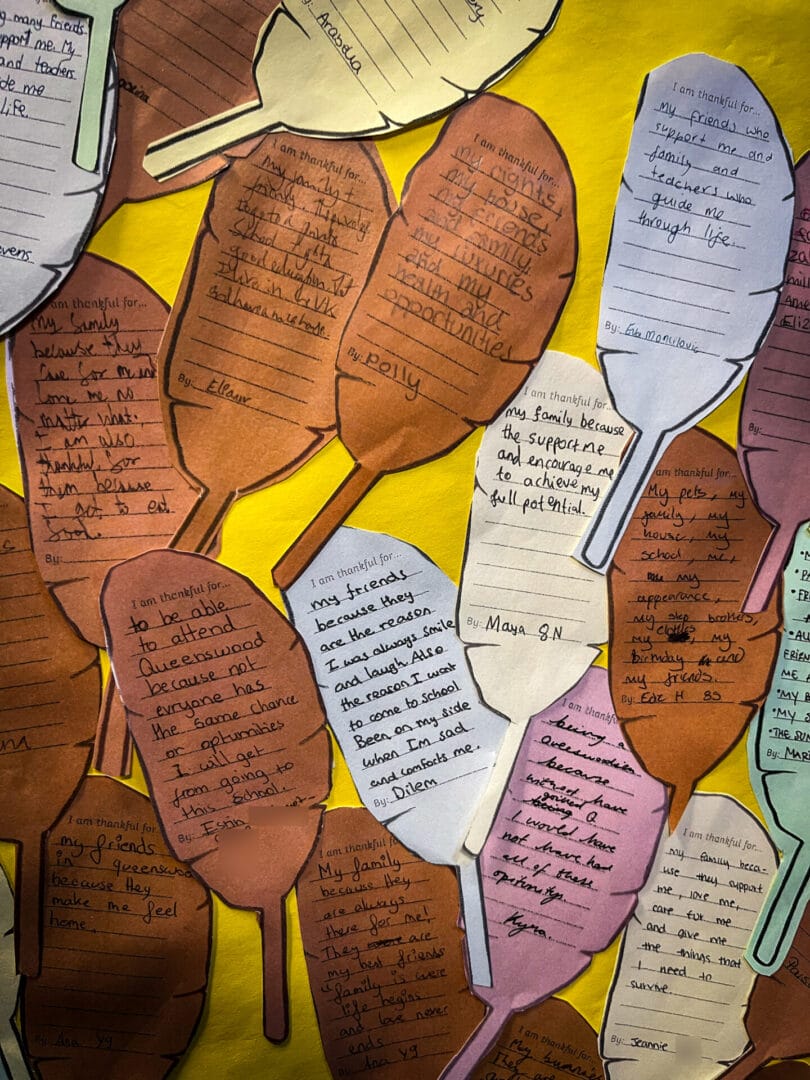 ng many friends
support me. My
and teachers
de me
life.
evens
Arabella
I am thankful for...
my family +
friends, They
to a private
School
good education. I
I live in the UK
By: Eleanr
I am thankful for...
my rights,
my house,
my friends
and family
my luxuries
and my
health and
opportunities
By: Polly
I am thankful for...
My friends who
support me and
family and
teachers who
guide me
through life.
By: Eva
am thankful for...
My family
because they
care for me and
love me no
matter what.
I am also
thankful for
them because
I got to eat
food.
By:
I am thankful for...
my family because
the support me
and encourage me
to achieve my
full potential.
By: Maya 8N
am thankful for...
My pets, my
family, my
house, my
school, me,
my
appearance,
my step brothers,
my clothes, my
Birthday and
my friends.
By: Edz H 8S
I am thankful for...
to be able
to attend
Queenswood
because not
evryone has
the same chance
or optunities
I will get
from going to
this school.
By: Esrin
I am thankful for...
my friends
because they
are the reason
I was always smile
and laugh. Also
the reason I want
to come to school
Been on my side
when I'm sad
and comforts me.
By: Dilem
I am thankfu
being a
Queenswoodian
because
without have
joined Q
I would have
not have had
all of these
oportunity.
Kyra.
I am thankful for
my friends
in queenswoo
because they
make me feel
home.
By: Ana Y9
I am thankful for
My family
because they
are always
there for me!
They are
my best friends
"family is were
life begins
and love never
ends
By: Ana Y9
I am thankful for...
my family beca-
use they support
me, love me,
care for me
and give me
the things that
I need to
survive.
By: Jeannie
By:
FRIE
ME
MY
MY
THE SUN
By: MARI
I am thankful for
My
They are